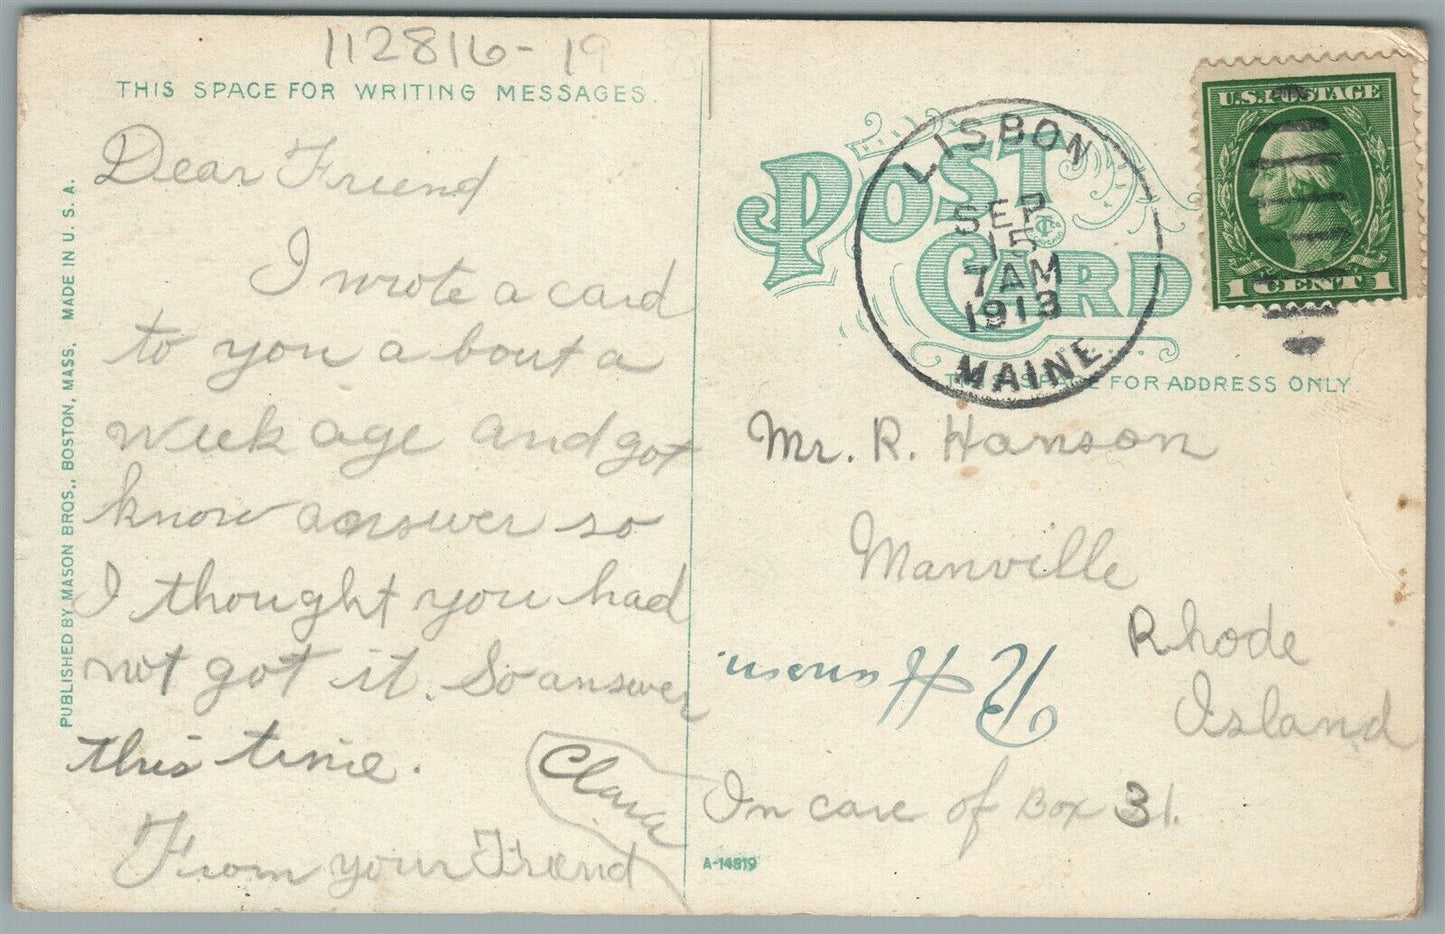 112816-19
THIS SPACE FOR WRITING MESSAGES.
Dear Friend
I wrote a card
to you a bout a
week age and got
know answer so
I thought you had
not got it. So answer
this time.
Clara
From your Friend
PUBLISHED BY MASON BROS., BOSTON, MASS. MADE IN U. S. A.
POST CARD
LISBON
SEP
15
7 AM
1913
MAINE
U.S. POSTAGE
1 CENT 1
THIS SPACE FOR ADDRESS ONLY
Mr. R. Hanson
Manville
Rhode
Island
R Hanson
In care of Box 31.
A-14819